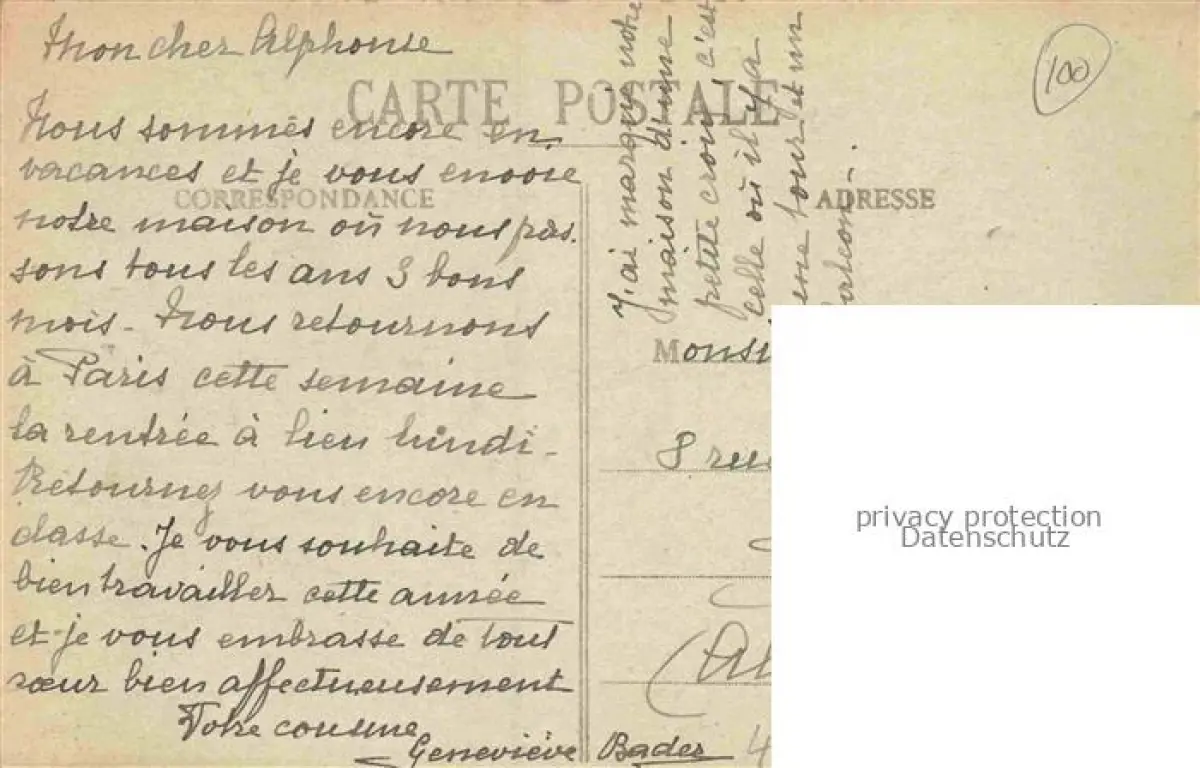 Mon cher Alphonse
CARTE POSTALE
100
Nous sommes encore en
vacances et je vous envoie
CORRESPONDANCE
notre maison où nous pas.
sons tous les ans 3 bons
mois - Nous retournons
à Paris cette semaine
la rentrée à lieu lundi -
Retournez vous encore en
classe. Je vous souhaite de
bien travailler cette année
et je vous embrasse de tout
cœur bien affectueusement
Votre cousine
Geneviève Bader
J'ai marqué notre
maison d'une
petite croix c'est
celle où il y a
une tour et un
balcon.
ADRESSE
Monsi
8 rue
(Al
4
privacy protection
Datenschutz